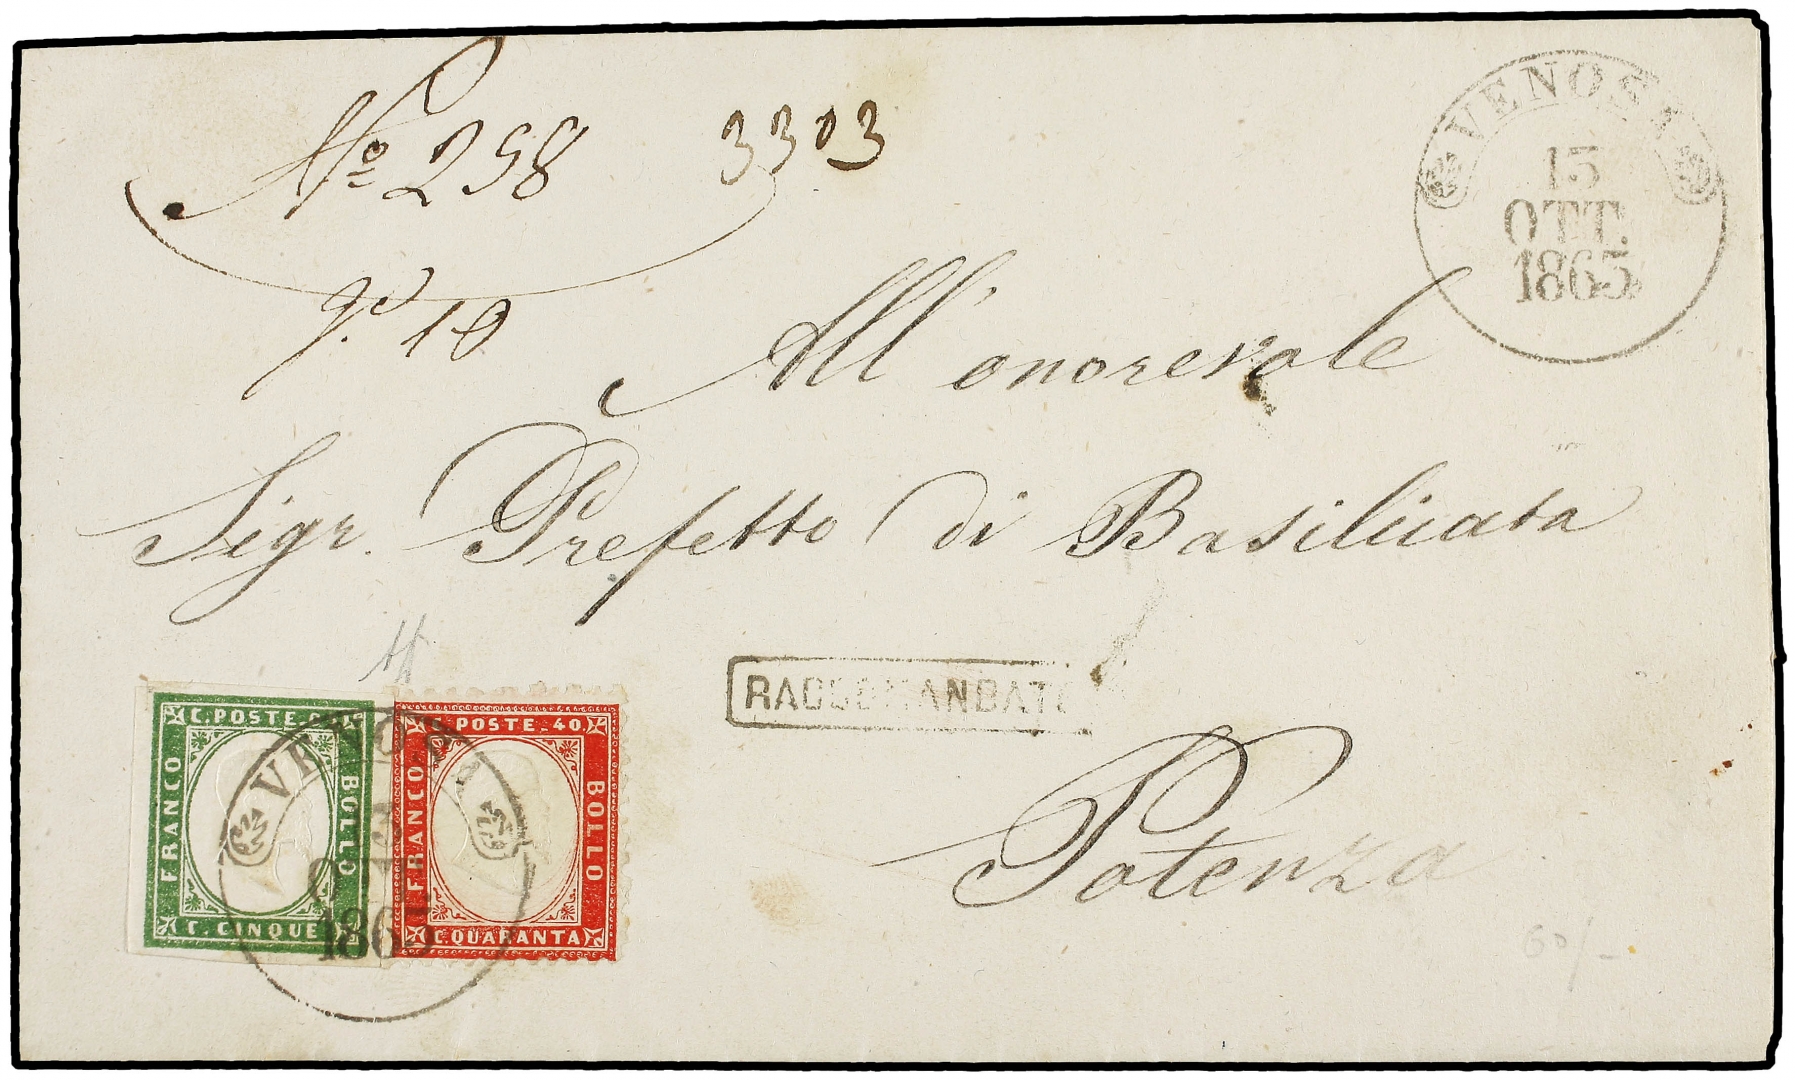 No 258
3303
VENOSA
13
OTT.
1865
gr 10
All' onorevole
Sigr. Prefetto di Basilicata
RACCOMANDATA
Potenza
C. POSTE
FRANCO
BOLLO
C. CINQUE
C. POSTE. 40
FRANCO
BOLLO
C. QUARANTA
VENOSA
1865
60/-